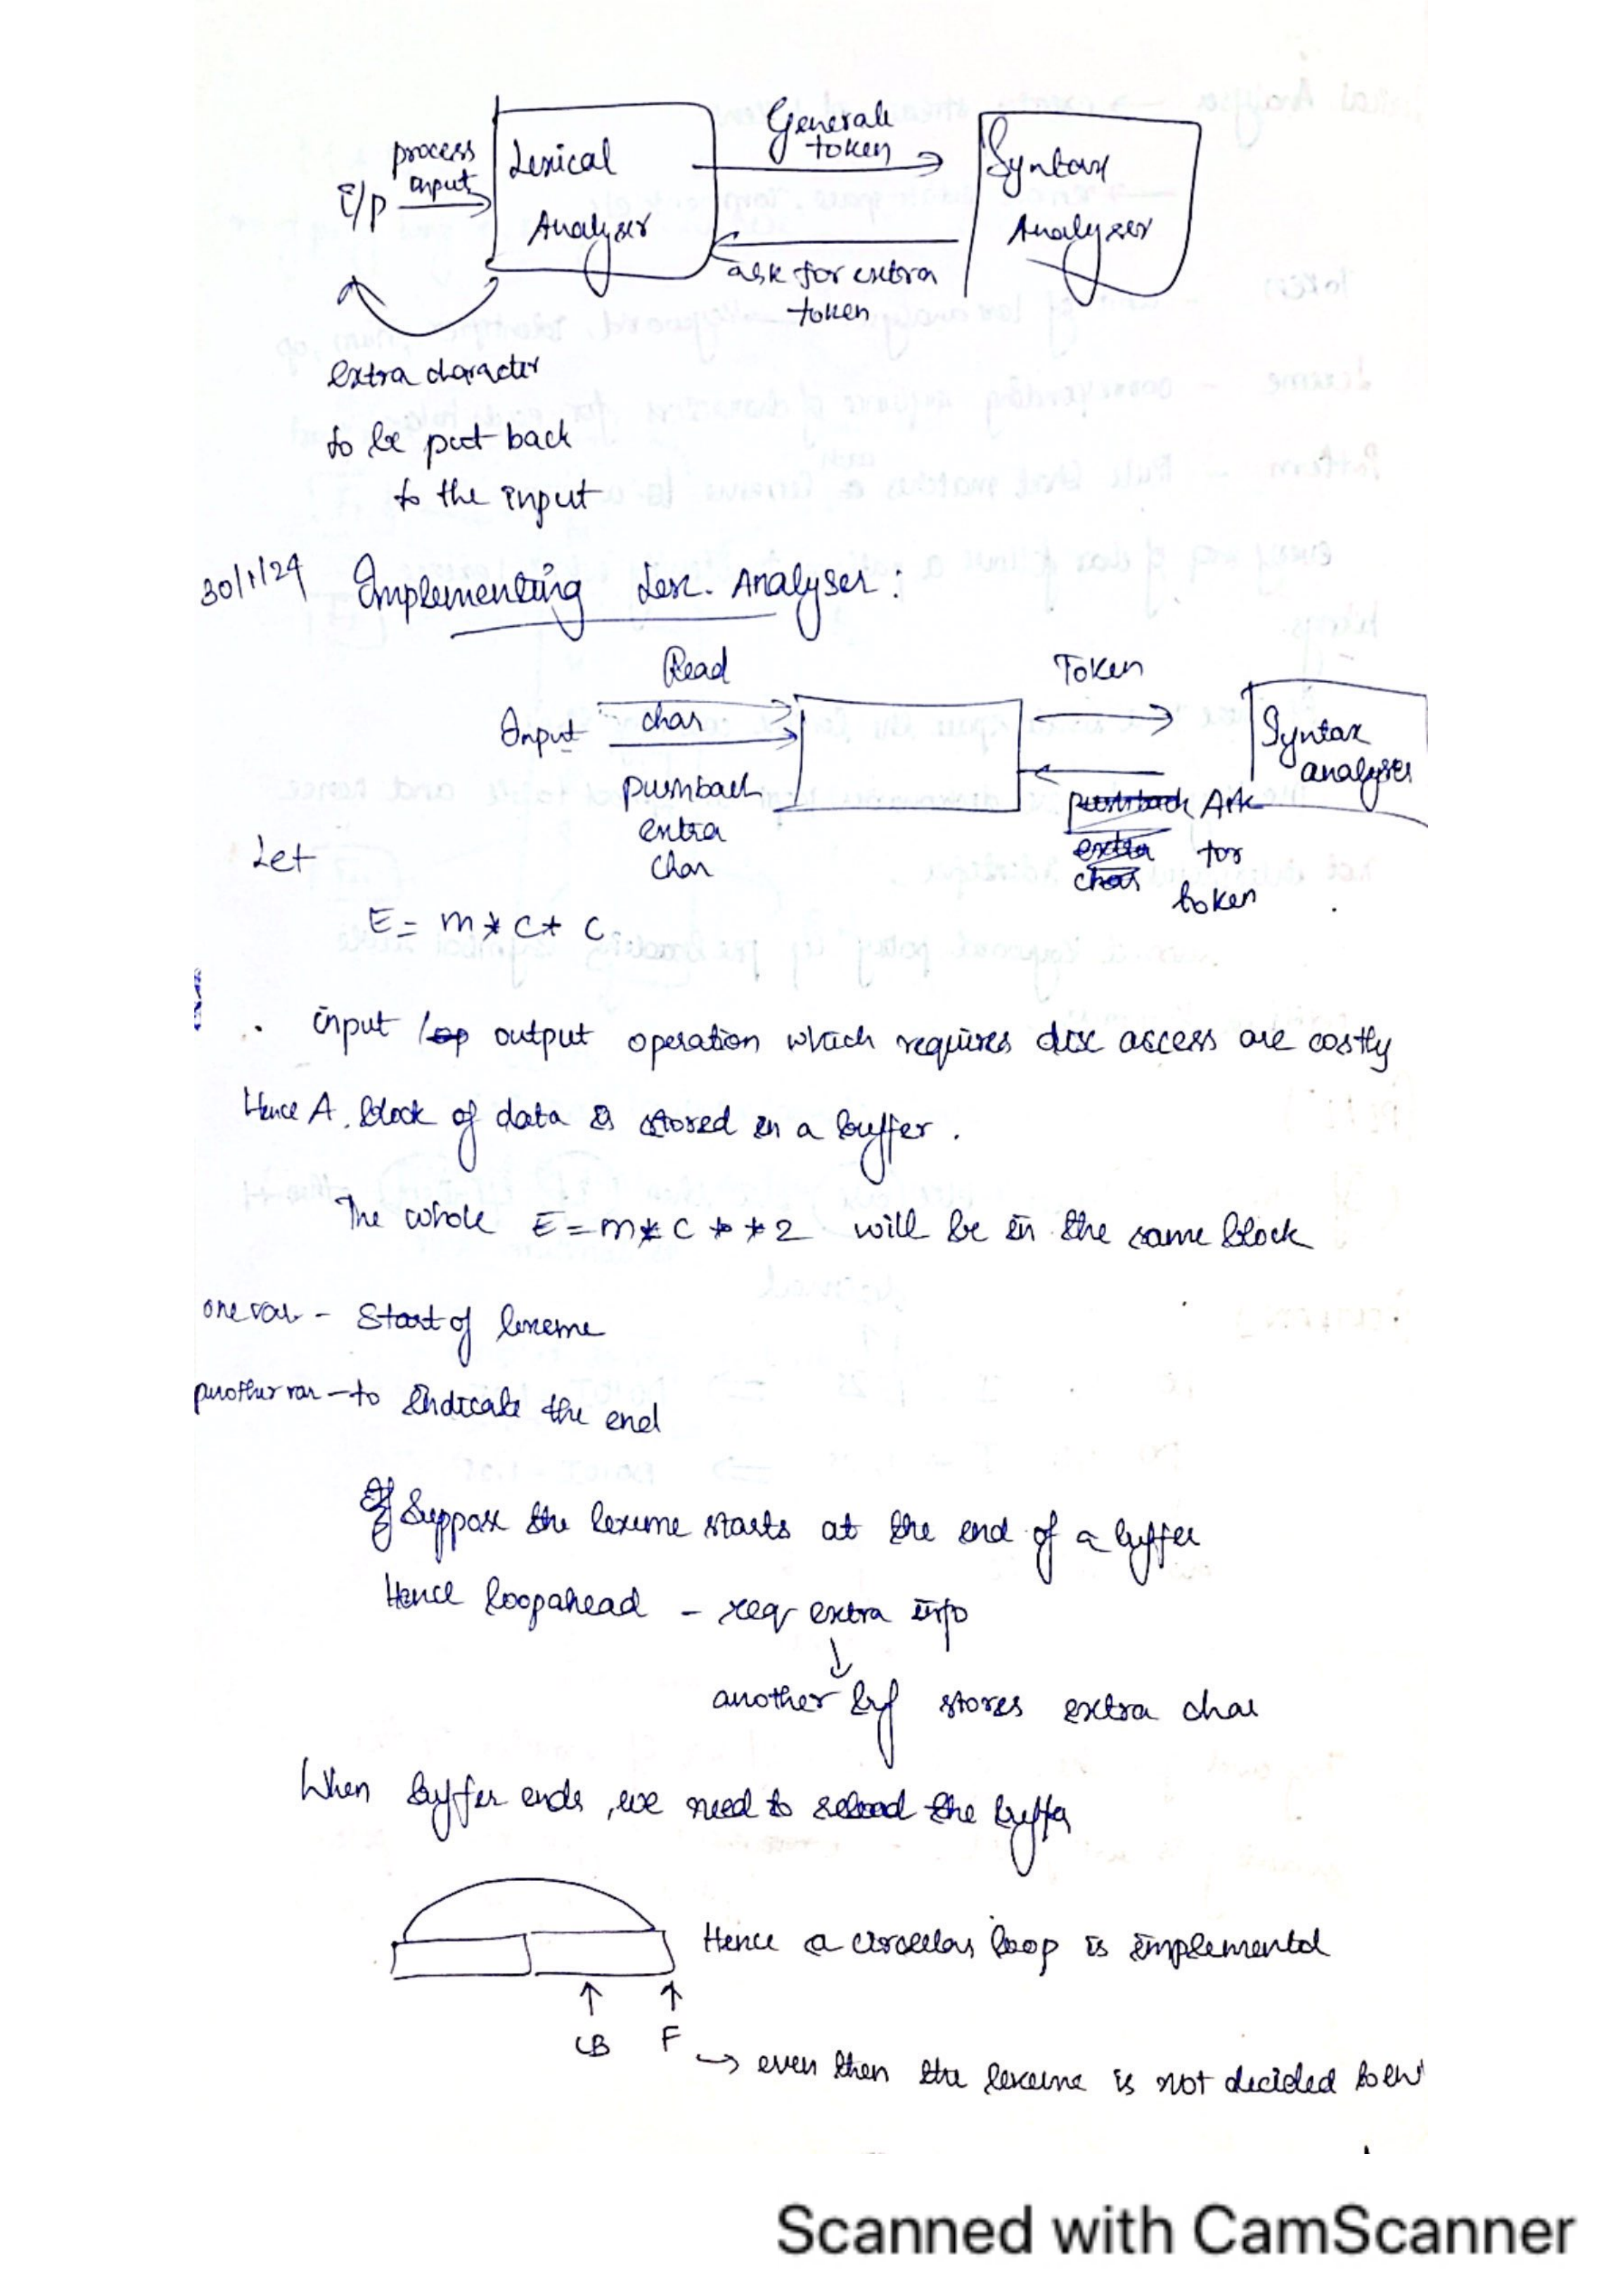 process
input
I/P
Lexical
Analyser
Generate
token
Syntax
Analyser
ask for extra
token
extra character
to be put back
to the input
30/1/24 Implementing Lex. Analyser:
Read
char
Input
pushback
extra
char
Token
Syntax
analyser
pushback Ask
extra for
char token
Let
E = m * c * c
. input / op output operation which requires disc access are costly
Hence A block of data is stored in a buffer.
The whole E = m * c * * 2 will be in the same block
one var - Start of lexeme
another var - to indicate the end
If Suppose the lexeme starts at the end of a buffer
Hence loopahead - req extra info
another buf stores extra char
When buffer ends, we need to reload the buffer
Hence a circular loop is implemented
LB F
→ even then the lexeme is not decided
Scanned with CamScanner